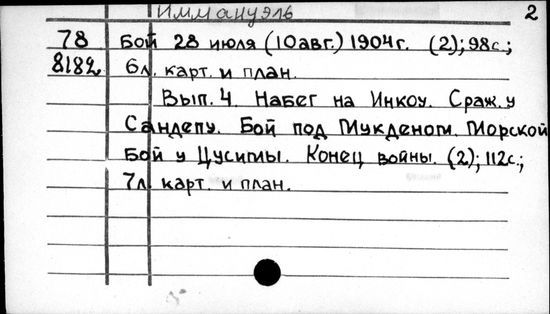 Иммануэль 2
78 Бой 28 июля (10 авг.) 1904 г. (2); 98 с.;
8182 6 л. карт. и план.
Вып. 4. Набег на Инкоу. Сраж. у
Сандепу. Бой под Мукденом. Морской
Бой у Цусимы. Конец войны. (2); 112 с.;
7 л. карт. и план.